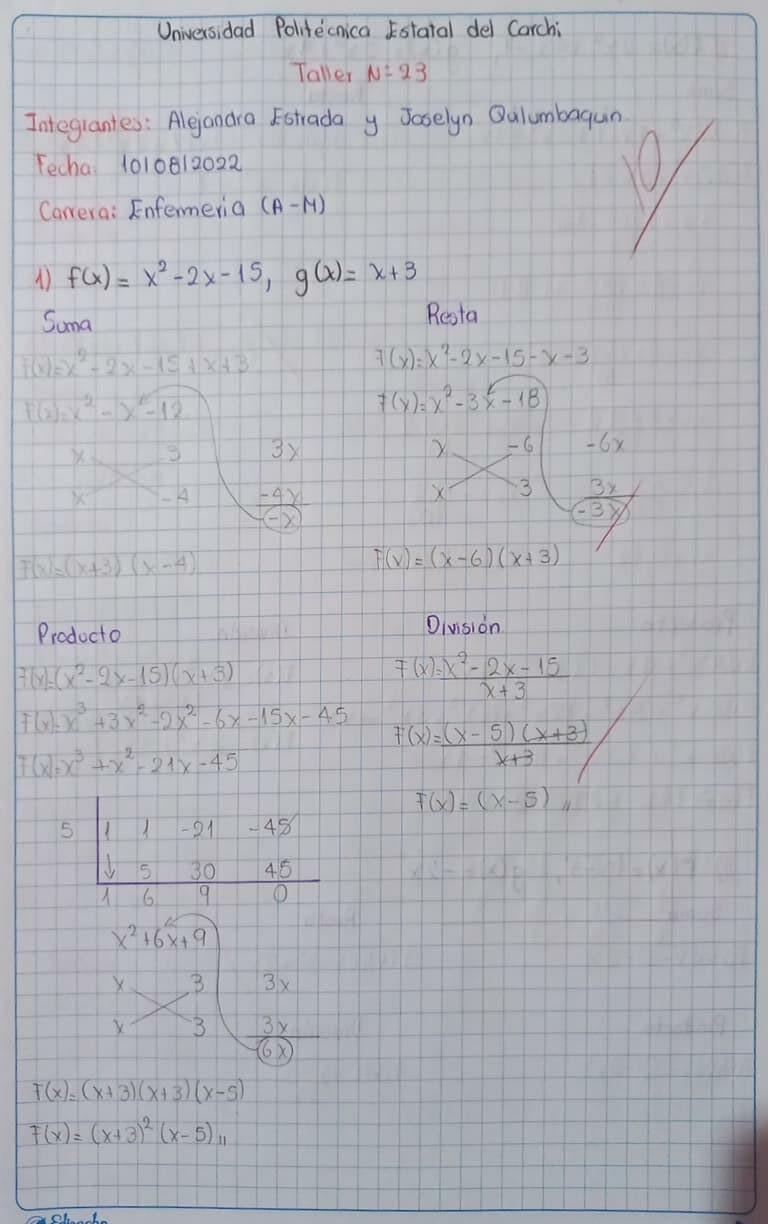 Universidad Politécnica Estatal del Carchi
Taller N=23
Integrantes: Alejandra Estrada y Joselyn Quilumbaquin
Fecha: 10/08/2022
Carrera: Enfermeria (A-M)
10
1) f(x) = x² - 2x - 15, g(x) = x + 3
Suma
F(x)=x² - 2x - 15 + x + 3
F(x)=x² - x - 12
x 3 3x
x -4 -4x
-x
F(x)=(x+3) (x-4)
Resta
F(x)=x² - 2x - 15 - x - 3
F(x)=x² - 3x - 18
x -6 -6x
x 3 3x
-3x
F(x) = (x-6)(x+3)
Producto
F(x)=(x² - 2x - 15)(x+3)
F(x)=x³ + 3x² - 2x² - 6x - 15x - 45
F(x)=x³ + x² - 21x - 45
5 1 1 -21 -45
↓ 5 30 45
1 6 9 0
x² + 6x + 9
x 3 3x
x 3 3x
6x
F(x)=(x+3)(x+3)(x-5)
F(x) = (x+3)² (x-5),,
División
F(x)=x² - 2x - 15
x + 3
F(x)=(x - 5)(x+3)
x+3
F(x) = (x-5),,